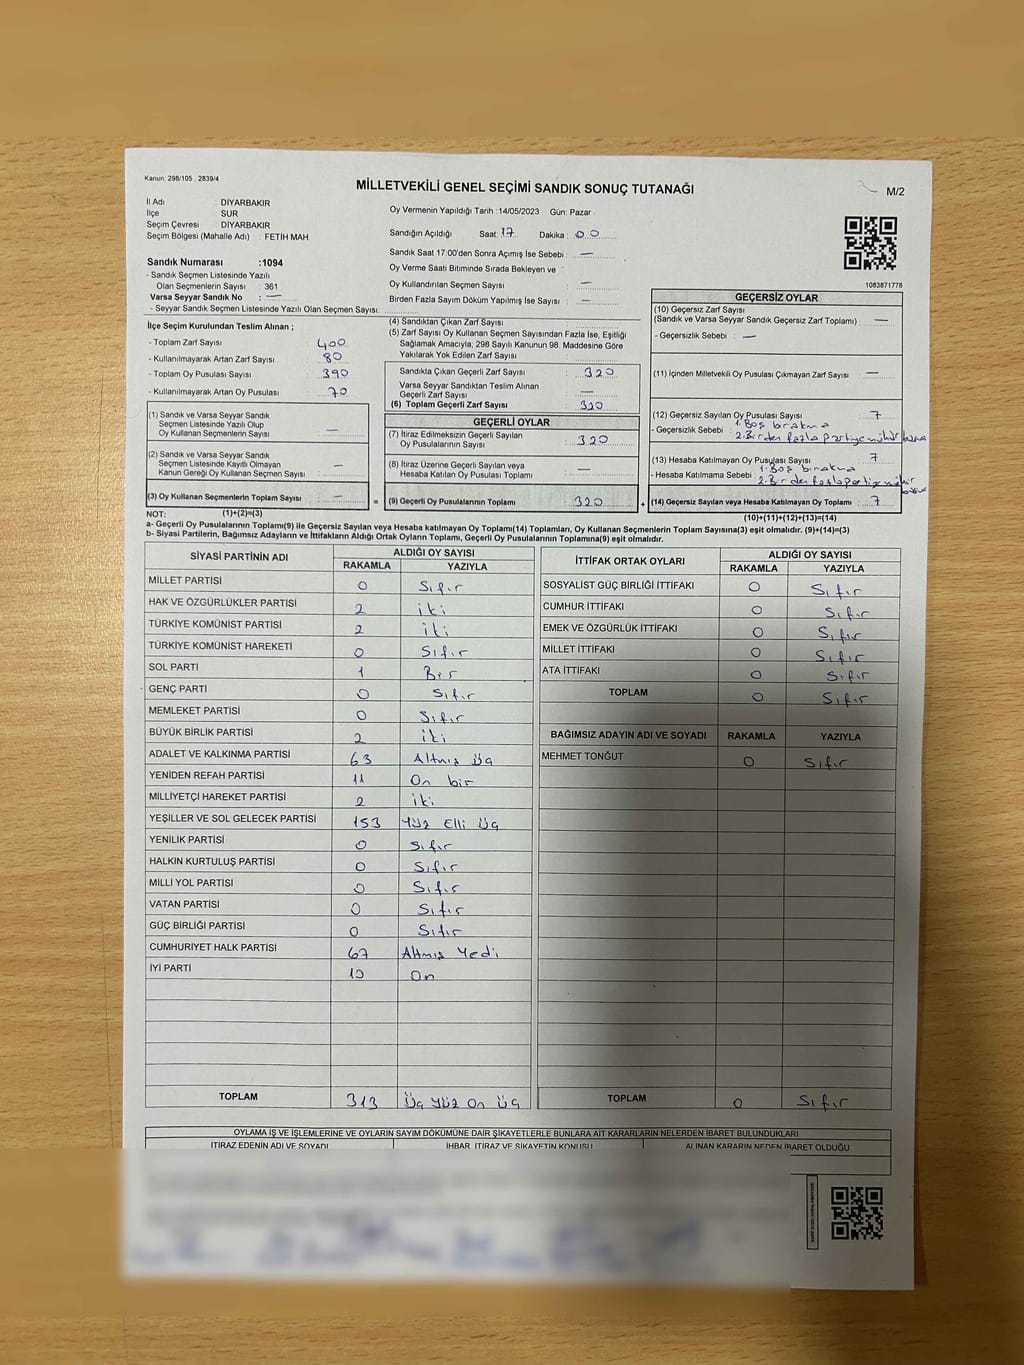 Kanun: 298/105 , 2839/4
MİLLETVEKİLİ GENEL SEÇİMİ SANDIK SONUÇ TUTANAĞI
M/2
İl Adı : DİYARBAKIR
İlçe SUR
Seçim Çevresi : DİYARBAKIR
Seçim Bölgesi (Mahalle Adı) : FETİH MAH.
Oy Vermenin Yapıldığı Tarih :14/05/2023 Gün: Pazar
Sandığın Açıldığı Saat: 17 Dakika: 00
Sandık Saat 17:00'den Sonra Açmış İse Sebebi : —
Oy Verme Saati Bitiminde Sırada Bekleyen ve
Oy Kullandırılan Seçmen Sayısı : —
Birden Fazla Sayım Döküm Yapılmış İse Sayısı : —
Sandık Numarası :1094
- Sandık Seçmen Listesinde Yazılı
Olan Seçmenlerin Sayısı : 361
Varsa Seyyar Sandık No : —
- Seyyar Sandık Seçmen Listesinde Yazılı Olan Seçmen Sayısı:
1083871778
İlçe Seçim Kurulundan Teslim Alınan ;
- Toplam Zarf Sayısı : 400
- Kullanılmayarak Artan Zarf Sayısı : 80
- Toplam Oy Pusulası Sayısı : 390
- Kullanılmayarak Artan Oy Pusulası : 70
(1) Sandık ve Varsa Seyyar Sandık
Seçmen Listesinde Yazılı Olup
Oy Kullanan Seçmenlerin Sayısı : —
(2) Sandık ve Varsa Seyyar Sandık
Seçmen Listesinde Kayıtlı Olmayan
Kanun Gereği Oy Kullanan Seçmen Sayısı : —
(3) Oy Kullanan Seçmenlerin Toplam Sayısı : —
(4) Sandıktan Çıkan Zarf Sayısı :
(5) Zarf Sayısı Oy Kullanan Seçmen Sayısından Fazla İse, Eşitliği
Sağlamak Amacıyla; 298 Sayılı Kanunun 98. Maddesine Göre
Yakılarak Yok Edilen Zarf Sayısı :
Sandıkta Çıkan Geçerli Zarf Sayısı : 320
Varsa Seyyar Sandıktan Teslim Alınan
Geçerli Zarf Sayısı : —
(6) Toplam Geçerli Zarf Sayısı : 320
GEÇERLİ OYLAR
(7) İtiraz Edilmeksizin Geçerli Sayılan
Oy Pusulalarının Sayısı : 320
(8) İtiraz Üzerine Geçerli Sayılan veya
Hesaba Katılan Oy Pusulası Toplamı : —
= (9) Geçerli Oy Pusulalarının Toplamı : 320 +
GEÇERSİZ OYLAR
(10) Geçersiz Zarf Sayısı
(Sandık ve Varsa Seyyar Sandık Geçersiz Zarf Toplamı) : —
- Geçersizlik Sebebi : —
(11) İçinden Milletvekili Oy Pusulası Çıkmayan Zarf Sayısı : —
(12) Geçersiz Sayılan Oy Pusulası Sayısı : 7
- Geçersizlik Sebebi : 1.Boş bırakma
2.Birden fazla partiye mühür basma
(13) Hesaba Katılmayan Oy Pusulası Sayısı : 7
- Hesaba Katılmama Sebebi : 1.Boş bırakma
2.Birden fazla partiye mühür
(14) Geçersiz Sayılan veya Hesaba Katılmayan Oy Toplamı : 7
NOT: (1)+(2)=(3)
(10)+(11)+(12)+(13)=(14)
a- Geçerli Oy Pusulalarının Toplamı(9) ile Geçersiz Sayılan veya Hesaba katılmayan Oy Toplamı(14) Toplamları, Oy Kullanan Seçmenlerin Toplam Sayısına(3) eşit olmalıdır. (9)+(14)=(3)
b- Siyasi Partilerin, Bağımsız Adayların ve İttifakların Aldığı Ortak Oyların Toplamı, Geçerli Oy Pusulalarının Toplamına(9) eşit olmalıdır.
SİYASİ PARTİNİN ADI ALDIĞI OY SAYISI
RAKAMLA YAZIYLA
MİLLET PARTİSİ 0 Sıfır
HAK VE ÖZGÜRLÜKLER PARTİSİ 2 iki
TÜRKİYE KOMÜNİST PARTİSİ 2 iki
TÜRKİYE KOMÜNİST HAREKETİ 0 Sıfır
SOL PARTİ 1 Bir
GENÇ PARTİ 0 Sıfır
MEMLEKET PARTİSİ 0 Sıfır
BÜYÜK BİRLİK PARTİSİ 2 iki
ADALET VE KALKINMA PARTİSİ 63 Altmış üç
YENİDEN REFAH PARTİSİ 11 On bir
MİLLİYETÇİ HAREKET PARTİSİ 2 iki
YEŞİLLER VE SOL GELECEK PARTİSİ 153 Yüz Elli üç
YENİLİK PARTİSİ 0 Sıfır
HALKIN KURTULUŞ PARTİSİ 0 Sıfır
MİLLİ YOL PARTİSİ 0 Sıfır
VATAN PARTİSİ 0 Sıfır
GÜÇ BİRLİĞİ PARTİSİ 0 Sıfır
CUMHURİYET HALK PARTİSİ 67 Altmış Yedi
İYİ PARTİ 10 On
TOPLAM 313 Üç Yüz On Üç
İTTİFAK ORTAK OYLARI ALDIĞI OY SAYISI
RAKAMLA YAZIYLA
SOSYALİST GÜÇ BİRLİĞİ İTTİFAKI 0 Sıfır
CUMHUR İTTİFAKI 0 Sıfır
EMEK VE ÖZGÜRLÜK İTTİFAKI 0 Sıfır
MİLLET İTTİFAKI 0 Sıfır
ATA İTTİFAKI 0 Sıfır
TOPLAM 0 Sıfır
BAĞIMSIZ ADAYIN ADI VE SOYADI RAKAMLA YAZIYLA
MEHMET TONĞUT 0 Sıfır
TOPLAM 0 Sıfır
OYLAMA İŞ VE İŞLEMLERİNE VE OYLARIN SAYIM DÖKÜMÜNE DAİR ŞİKAYETLERLE BUNLARA AİT KARARLARIN NELERDEN İBARET BULUNDUKLARI
İTİRAZ EDENİN ADI VE SOYADI İHBAR, İTİRAZ VE ŞİKAYETİN KONUSU ALINAN KARARIN NEDEN İBARET OLDUĞU